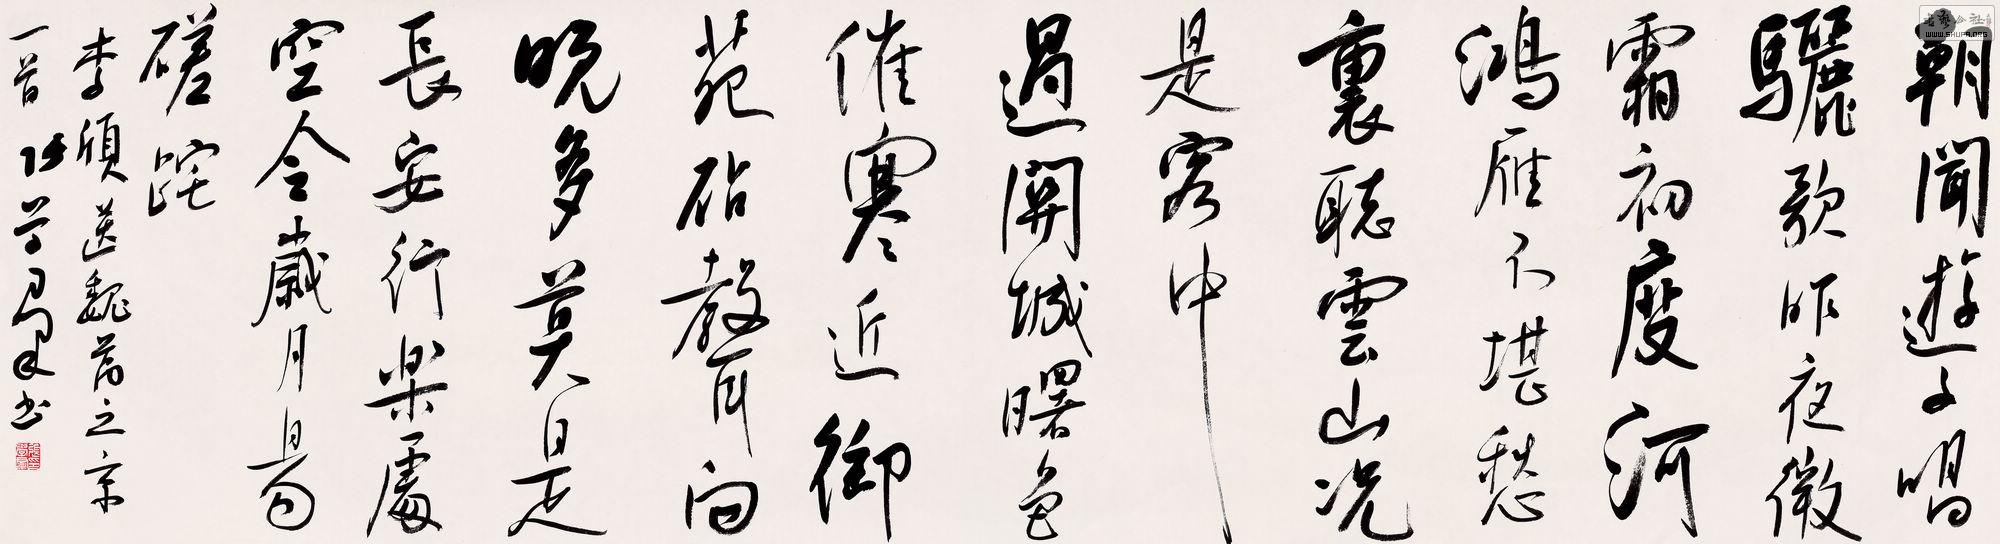 朝聞遊子唱
驪歌昨夜微
霜初度河
鴻雁不堪愁
裏聽雲山况
是客中
過關城曙色
催寒近御
苑砧聲向
晚多莫是
長安行楽處
空令歲月易
磋跎
李頎送魏萬之京
一首 書
WWW.SHUFA.ORG